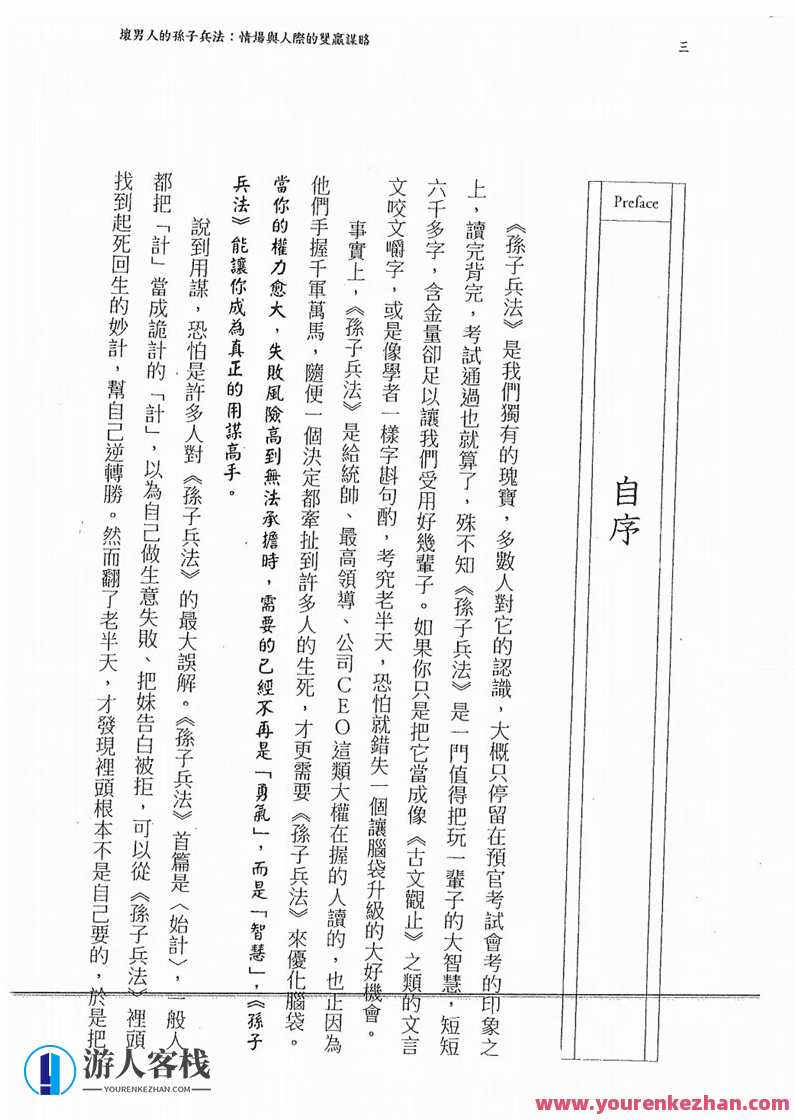 壞男人的孫子兵法：情場與人際的雙贏謀略
三
Preface
自序
《孫子兵法》是我們獨有的瑰寶，多數人對它的認識，大概只停留在預官考試會考的印象之
上，讀完背完，考試通過也就算了，殊不知《孫子兵法》是一門值得把玩一輩子的大智慧，短短
六千多字，含金量卻足以讓我們受用好幾輩子。如果你只是把它當成像《古文觀止》之類的文言
文咬文嚼字，或是像學者一樣字斟句酌，考究老半天，恐怕就錯失一個讓腦袋升級的大好機會。
事實上，《孫子兵法》是給統帥、最高領導、公司CEO這類大權在握的人讀的，也正因為
他們手握千軍萬馬，隨便一個決定都牽扯到許多人的生死，才更需要《孫子兵法》來優化腦袋。
當你的權力愈大，失敗風險高到無法承擔時，需要的已經不再是「勇氣」，而是「智慧」，《孫子
兵法》能讓你成為真正的用謀高手。
說到用謀，恐怕是許多人對《孫子兵法》的最大誤解。《孫子兵法》首篇是〈始計〉，一般人
都把「計」當成詭計的「計」，以為自己做生意失敗、把妹告白被拒，可以從《孫子兵法》裡頭
找到起死回生的妙計，幫自己逆轉勝。然而翻了老半天，才發現裡頭根本不是自己要的，於是把
游人客栈
YOURENKEZHAN.COM
https://www.yourenkezhan.com